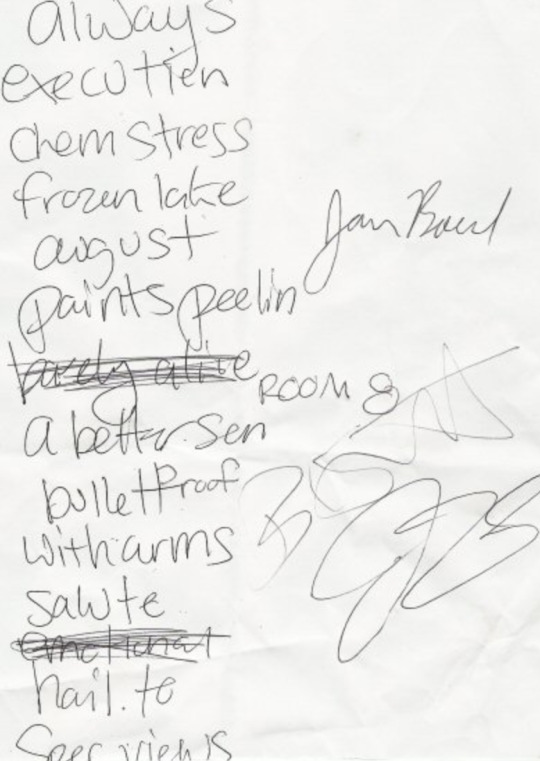 always
execution
chem stress
frozen lake
august
paints peelin
barely alive ROOM 8
a better sen
bulletproof
with arms
salute
emotional
hail.to
Spec views